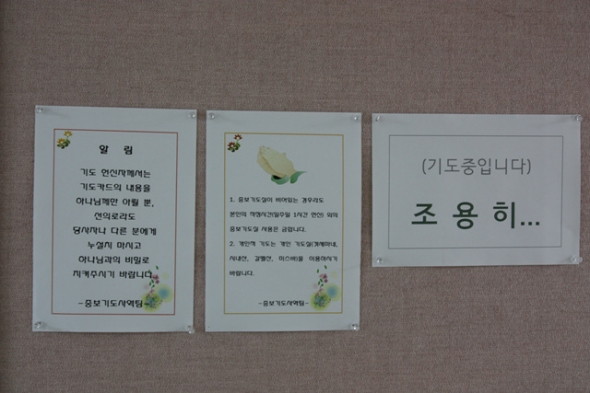 알 림
기도 헌신자께서는
기도카드의 내용을
하나님께만 아뢸 뿐,
선의로라도
당사자나 다른 분에게
누설치 마시고
하나님과의 비밀로
지켜주시기 바랍니다.
-중보기도사역팀-
1. 중보기도실이 비어있는 경우라도
본인의 작정시간(일주일 1시간 헌신) 외의
중보기도실 사용은 금합니다.
2. 개인적 기도는 개인 기도실(겟세마네,
시내산, 갈멜산, 미스바)를 이용하시기
바랍니다.
-중보기도사역팀-
(기도중입니다)
조 용 히...